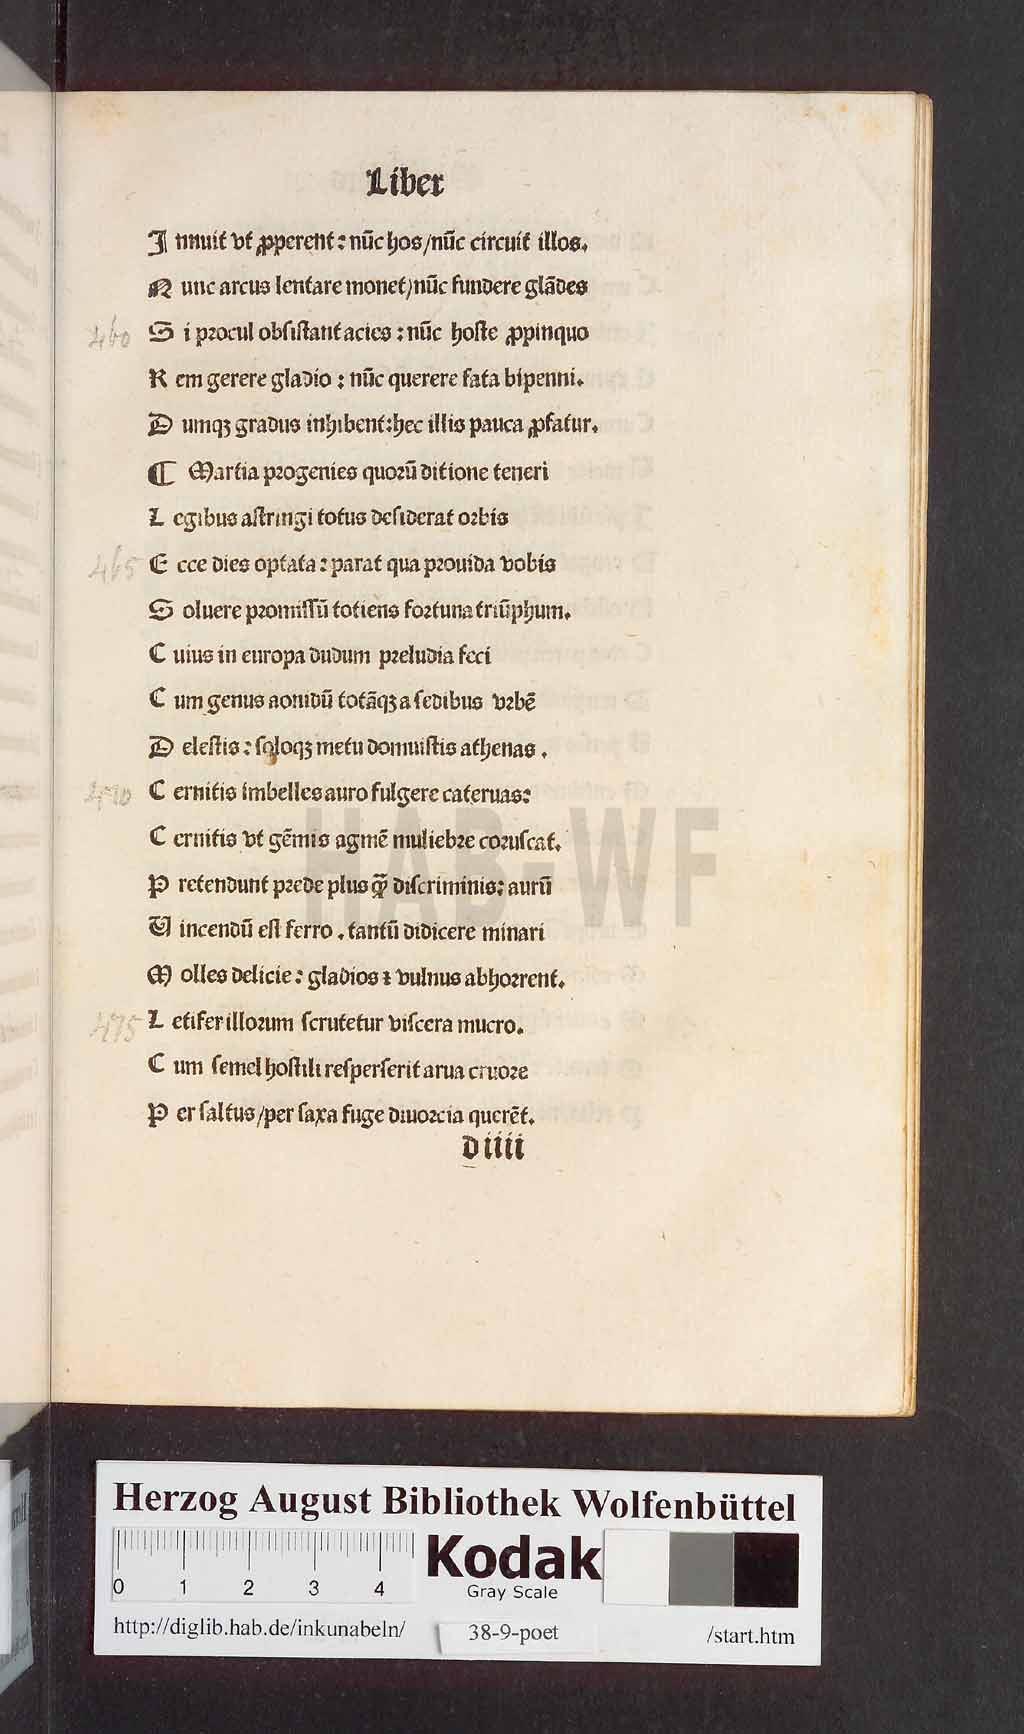 Liber
I nnuit vt ꝓperent: nūc hos/nūc circuit illos.
N unc arcus lentare monet/nūc fundere glādes
460 S i procul obſiſtant acies: nūc hoſte ꝓpinquo
R em gerere gladio: nūc querere fata bipenni.
D umqꝫ gradus inhibent: hec illis pauca ꝓfatur.
¶ Martia progenies quorū ditione teneri
L egibus aſtringi totus deſiderat orbis
465 E cce dies optata: parat qua prouida vobis
S oluere promiſſū totiens fortuna triūphum.
C uius in europa dudum preludia feci
C um genus aonidū totāqꝫ a ſedibus vrbē
D eleſtis: ſoloqꝫ metu domuiſtis athenas.
470 C ernitis imbelles auro fulgere cateruas:
C ernitis vt gēmis agmē muliebre coruſcat.
P retendunt prede plus qꝫ̄ diſcriminis: aurū
V incendū eſt ferro. tantū didicere minari
M olles delicie: gladios ⁊ vulnus abhorrent.
475 L etifer illorum ſcrutetur viſcera mucro.
C um ſemel hoſtili reſperſerit arua cruore
P er ſaltus/per ſaxa fuge diuorcia querēt.
D iiii
HAB-WF
Herzog August Bibliothek Wolfenbüttel
0 1 2 3 4
Kodak
Gray Scale
http://diglib.hab.de/inkunabeln/ 38-9-poet /start.htm